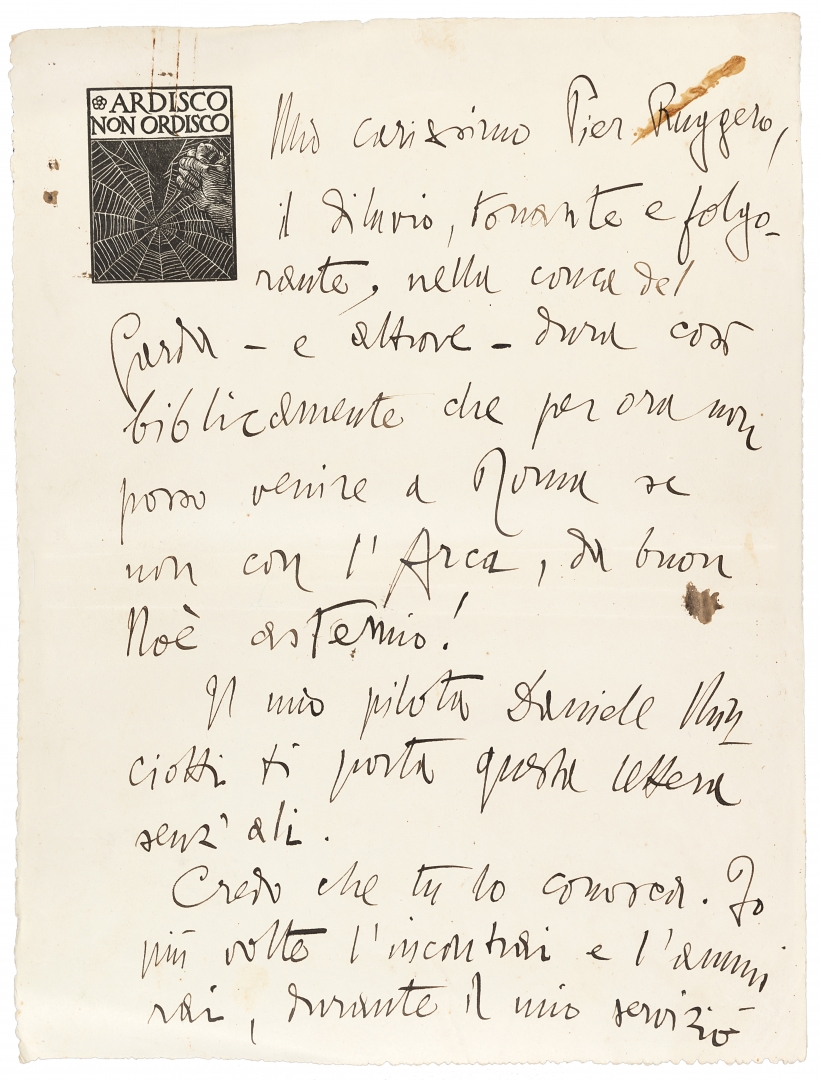 ARDISCO
NON ORDISCO
Mio carissimo Pier Ruggero,
il diluvio, tonante e folgo-
rante, nella conca del
Garda - e altrove - dura così
biblicamente che per ora non
posso venire a Roma se
non con l'Arca, da buon
Noè astemio!
Il mio pilota Daniele Min
ciotti ti porta questa lettera
senz'ali.
Credo che tu lo conosca. Io
più volte l'incontrai e l'ammi
rai, durante il mio servizio